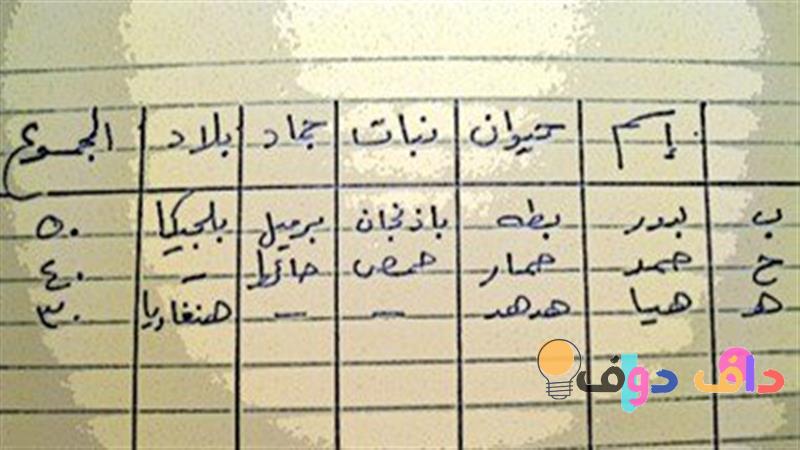 إسم حيوان نبات جماد بلاد المجموع
ب بدر بطه باذنجان برميل بلجيكا ٥٠
ح حمد حمار حمص حائط - ٤٠
ه هيا هدهد - - هنغاريا ٣٠
داف دوف